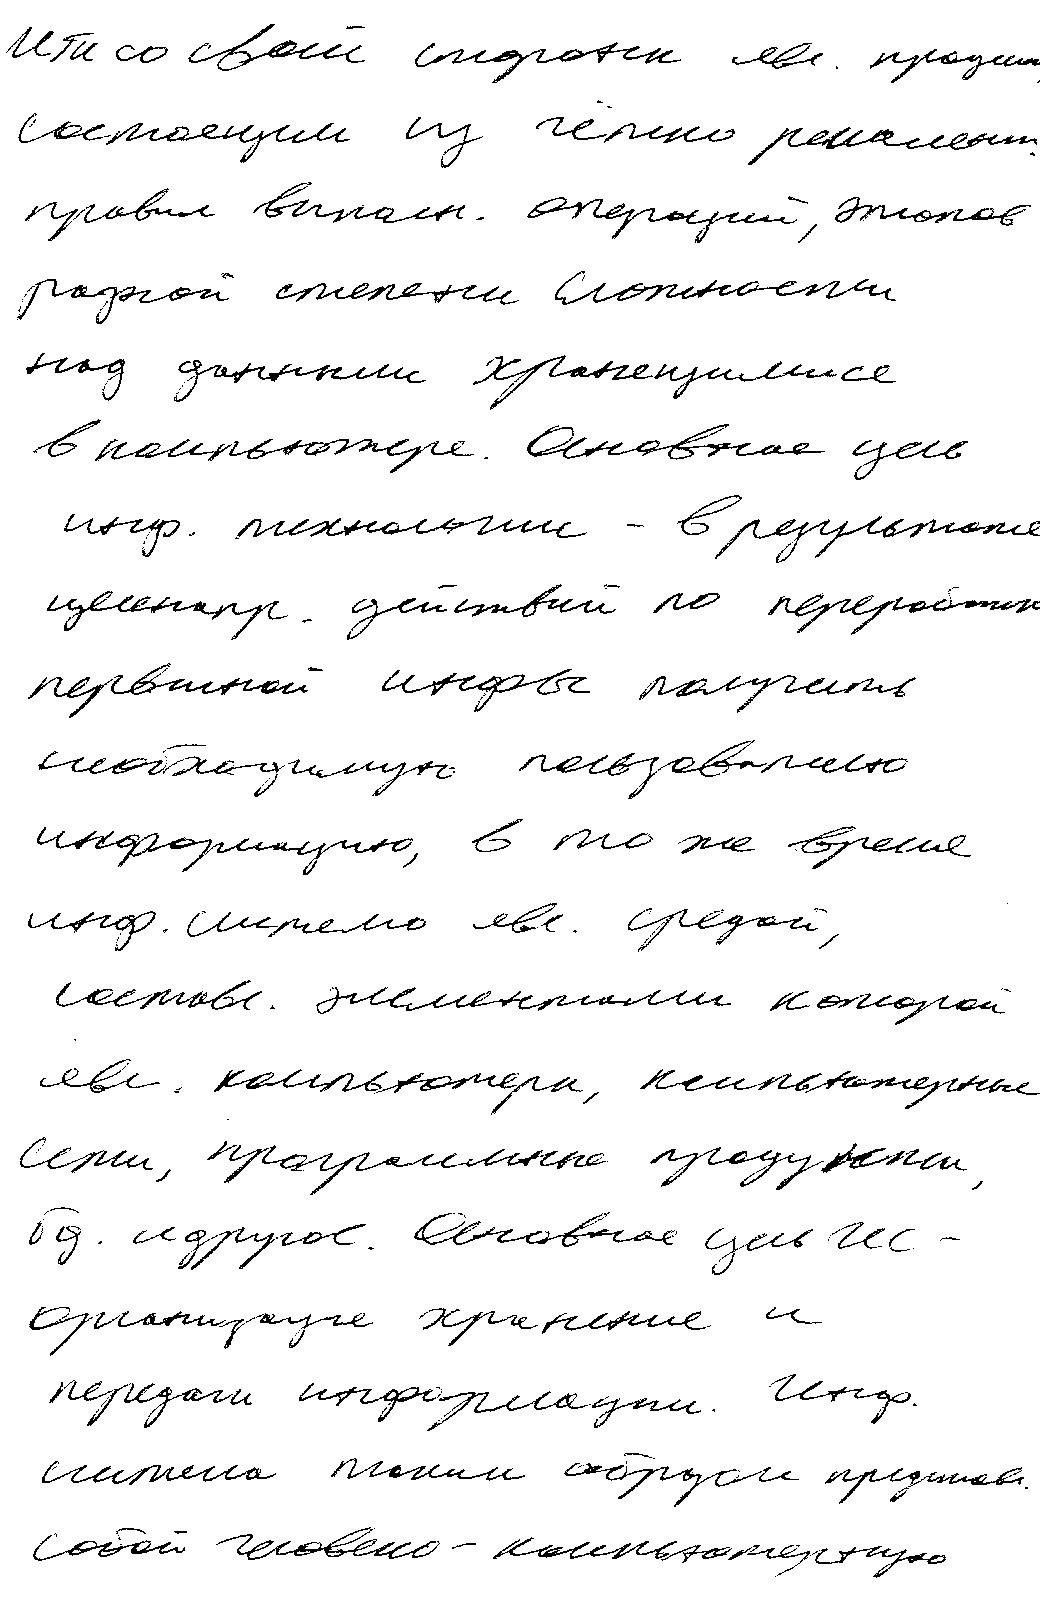 ИТ и со своей стороны явл. процессом,
состоящим из чётко регламент.
правил выполн. операций, этапов
разной степени сложности
над данными хранящимися
в компьютере. Основная цель
инф. технологии – в результате
целенапр. действий по переработке
первичной инфы получить
необходимую пользователю
информацию, в то же время
инф. система явл. средой,
составл. элементами которой
явл. компьютеры, компьютерные
сети, программные продукты,
бд. и другое. Основная цель ИС –
организация хранение и
передачи информации. Инф.
система таким образом представл.
собой человеко-компьютерную